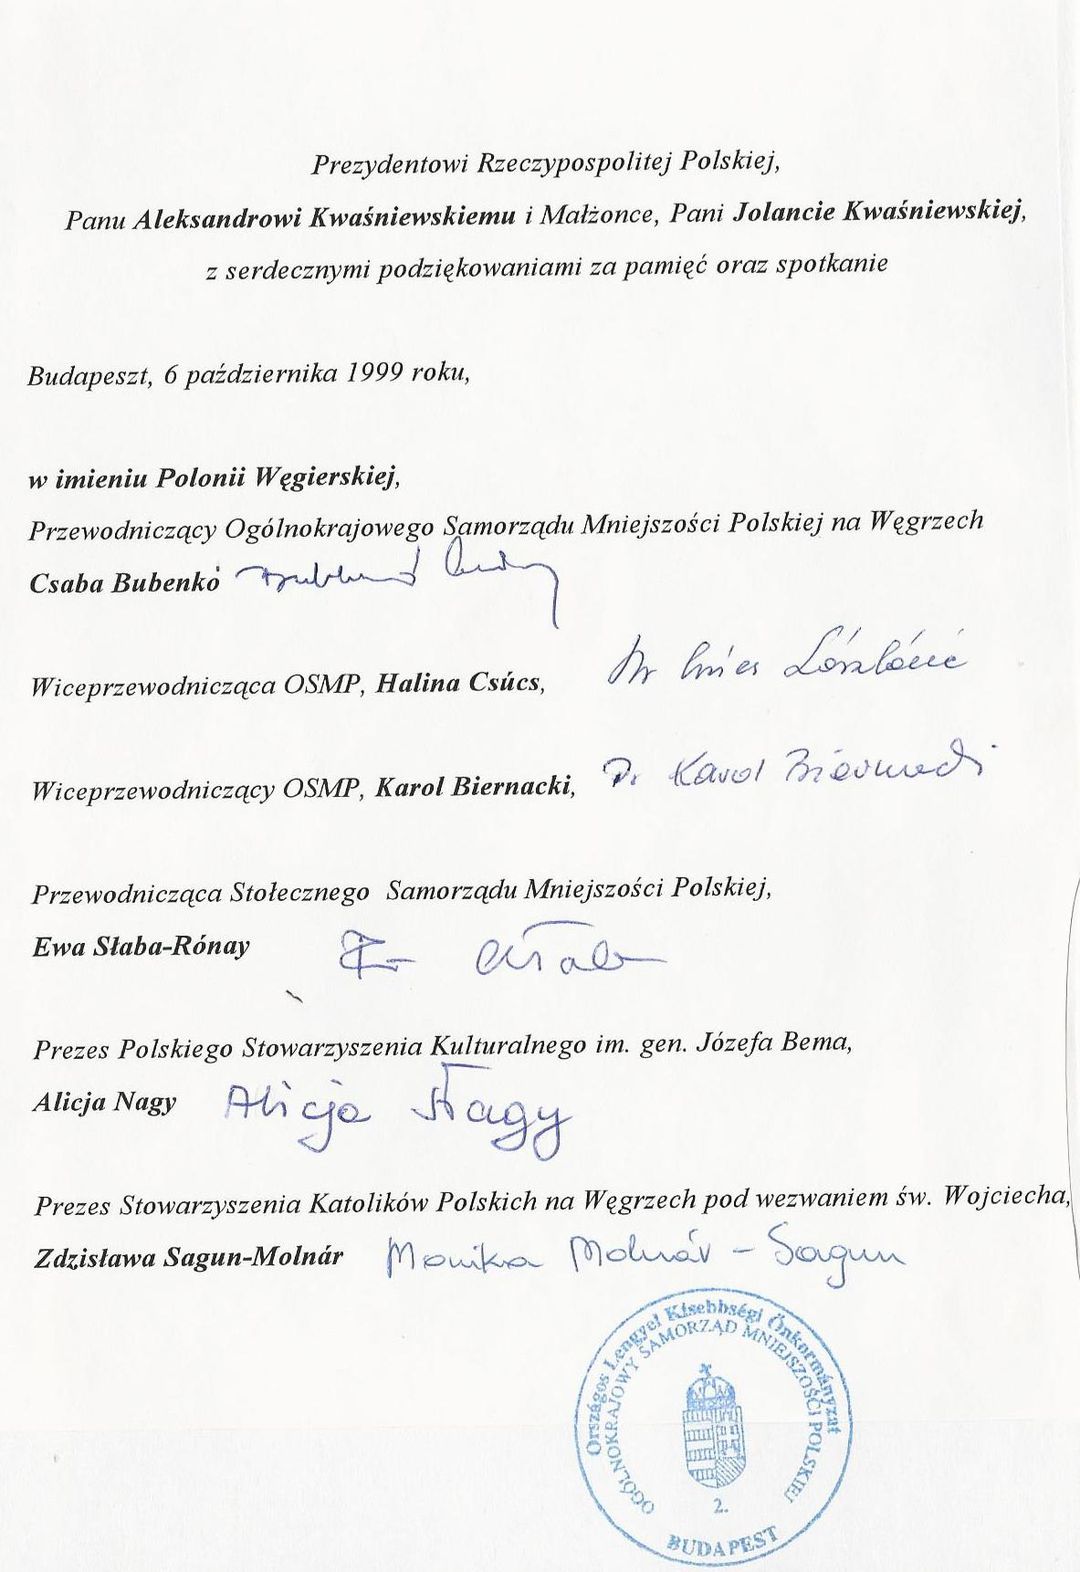 Prezydentowi Rzeczypospolitej Polskiej,
Panu Aleksandrowi Kwaśniewskiemu i Małżonce, Pani Jolancie Kwaśniewskiej,
z serdecznymi podziękowaniami za pamięć oraz spotkanie
Budapeszt, 6 października 1999 roku,
w imieniu Polonii Węgierskiej,
Przewodniczący Ogólnokrajowego Samorządu Mniejszości Polskiej na Węgrzech
Csaba Bubenkó
Dr Csúcs Lászlóné
Wiceprzewodnicząca OSMP, Halina Csúcs,
Wiceprzewodniczący OSMP, Karol Biernacki, Dr Karol Biernacki
Przewodnicząca Stołecznego Samorządu Mniejszości Polskiej,
Ewa Słaba-Rónay
Prezes Polskiego Stowarzyszenia Kulturalnego im. gen. Józefa Bema,
Alicja Nagy Alicja Nagy
Prezes Stowarzyszenia Katolików Polskich na Węgrzech pod wezwaniem św. Wojciecha,
Zdzisława Sagun-Molnár Monika Molnár - Sagun
Országos Lengyel Kisebbségi Önkormányzat
OGÓLNOKRAJOWY SAMORZĄD MNIEJSZOŚCI POLSKIEJ
2.
BUDAPEST